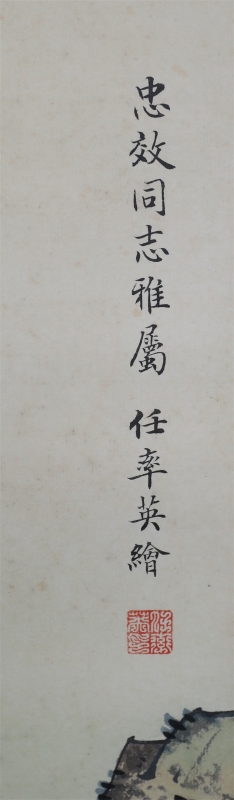 忠效同志雅屬 任率英繪